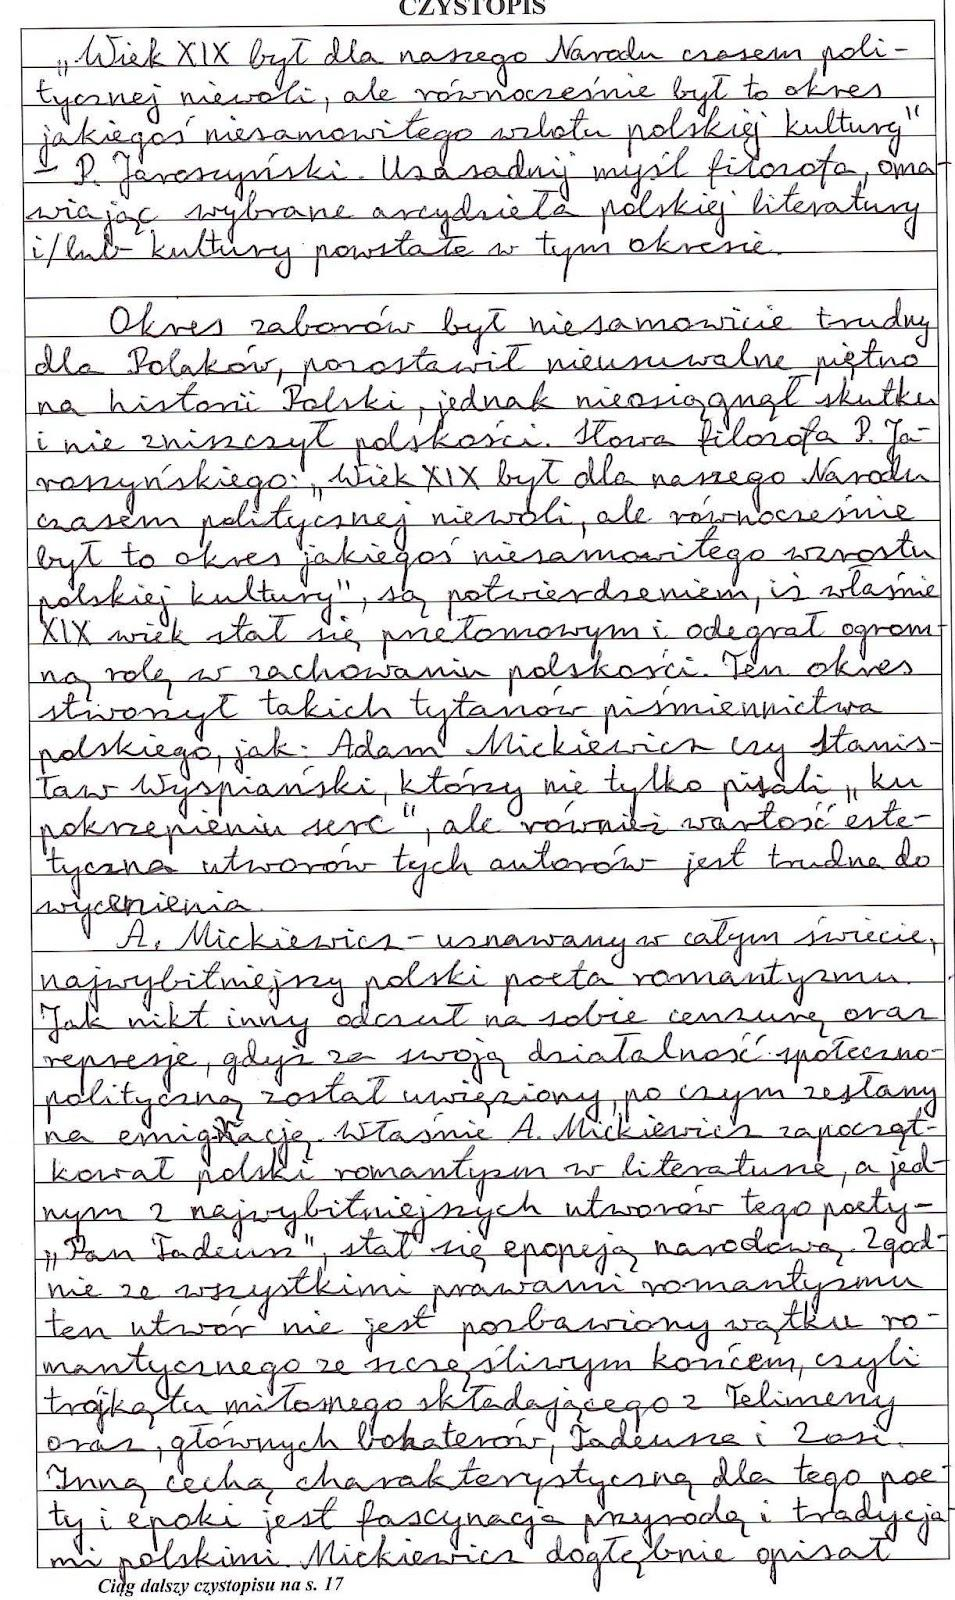 CZYSTOPIS
„Wiek XIX był dla naszego Narodu czasem poli-
tycznej niewoli, ale równocześnie był to okres
jakiegoś niesamowitego wzlotu polskiej kultury"
– P. Jaroszyński. Uzasadnij myśl filozofa, oma-
wiając wybrane arcydzieła polskiej literatury
i/lub kultury powstałe w tym okresie.
Okres zaborów był niesamowicie trudny
dla Polaków, pozostawił nieusuwalne piętno
na historii Polski, jednak nieosiągnął skutku
i nie zniszczył polskości. Słowa filozofa P. Ja-
roszyńskiego: „Wiek XIX był dla naszego Narodu
czasem politycznej niewoli, ale równocześnie
był to okres jakiegoś niesamowitego wzrostu
polskiej kultury", są potwierdzeniem, iż właśnie
XIX wiek stał się przełomowym i odegrał ogrom-
ną rolę w zachowaniu polskości. Ten okres
stworzył takich tytanów piśmiennictwa
polskiego, jak: Adam Mickiewicz czy Stanis-
ław Wyspiański, którzy nie tylko pisali „ku
pokrzepieniu serc", ale również wartość este-
tyczna utworów tych autorów jest trudna do
wycenienia.
A. Mickiewicz – uznawany w całym świecie,
najwybitniejszy polski poeta romantyzmu.
Jak nikt inny odczuł na sobie cenzurę oraz
represje, gdyż za swoją działalność społeczno-
polityczną został uwięziony, po czym zesłany
na emigrację. Właśnie A. Mickiewicz zapocząt-
kował polski romantyzm w literaturze, a jed-
nym z najwybitniejszych utworów tego poety –
„Pan Tadeusz", stał się epopeją narodową. Zgod-
nie ze wszystkimi prawami romantyzmu
ten utwór nie jest pozbawiony wątku ro-
mantycznego ze szczęśliwym końcem, czyli
trójkątu miłosnego składającego z Telimeny
oraz, głównych bohaterów, Tadeusza i Zosi.
Inną cechą charakterystyczną dla tego poe-
ty i epoki jest fascynacja przyrodą i tradycja-
mi polskimi. Mickiewicz dogłębnie opisał
Ciąg dalszy czystopisu na s. 17